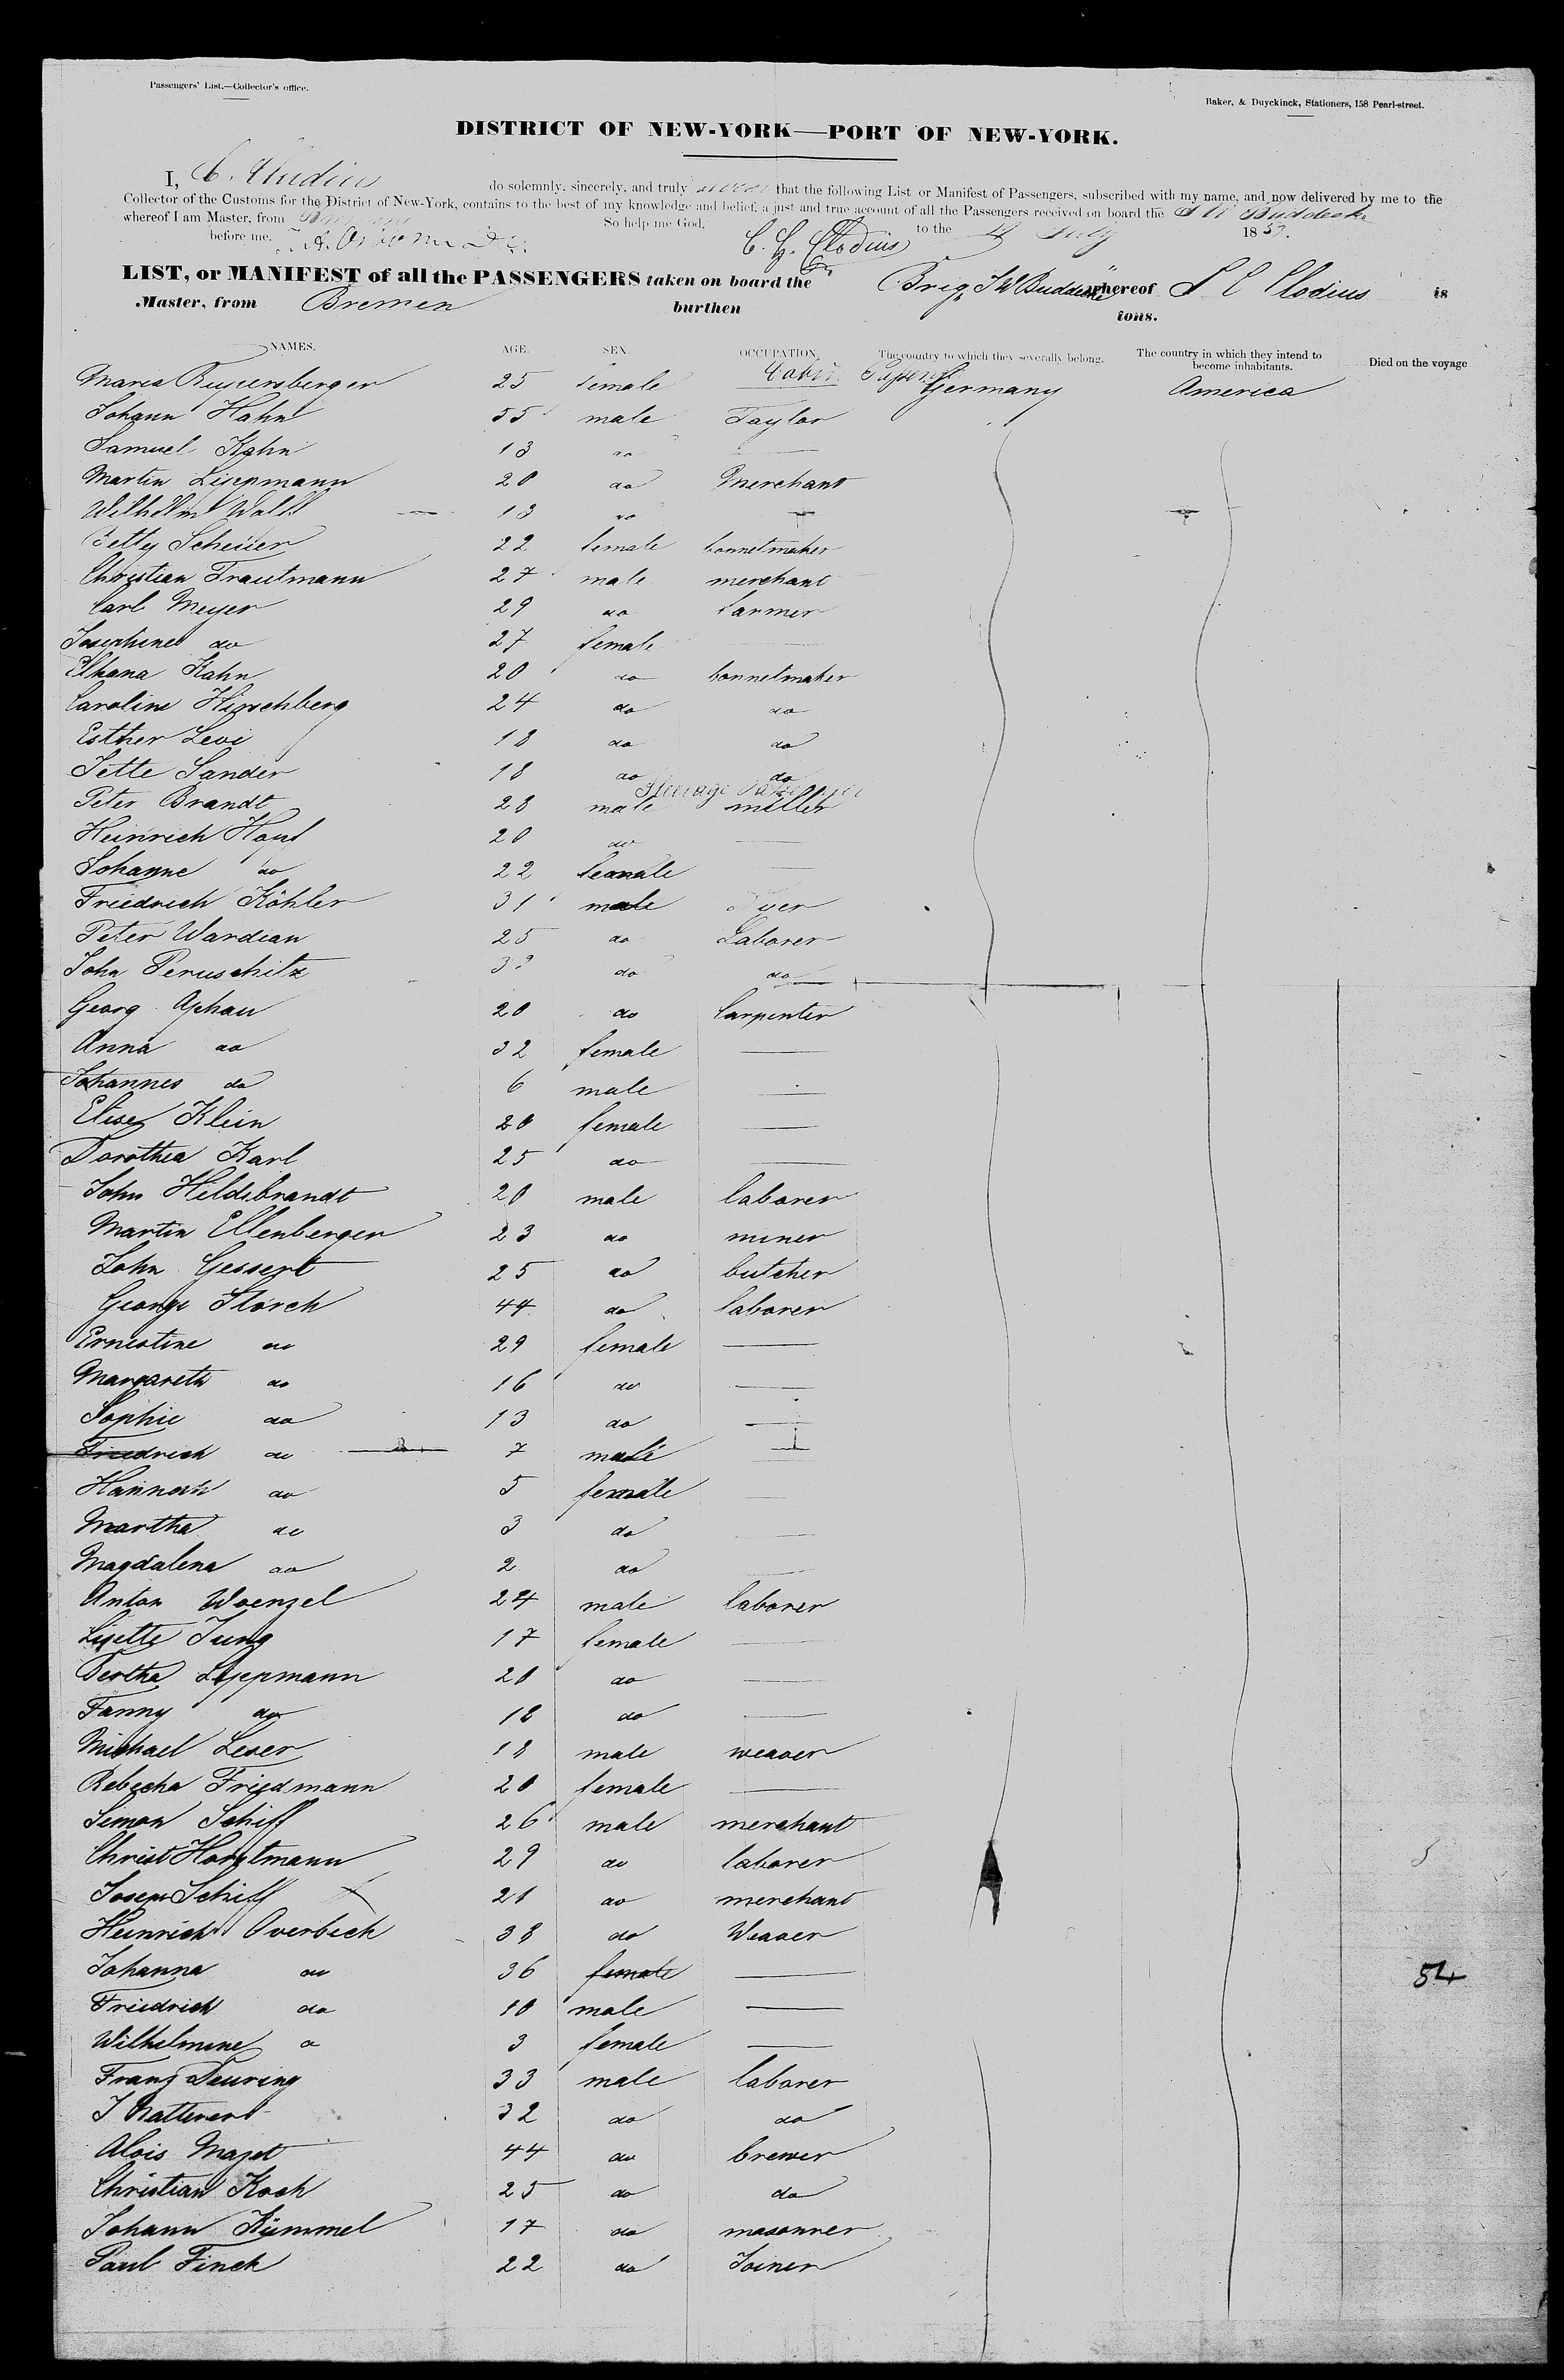 Passengers' List.—Collector's office.
Baker, & Duyckinck, Stationers, 158 Pearl-street.
DISTRICT OF NEW-YORK—PORT OF NEW-YORK.
I, C. do solemnly, sincerely, and truly swear that the following List or Manifest of Passengers, subscribed with my name, and now delivered by me to the
Collector of the Customs for the District of New-York, contains to the best of my knowledge and belief, a just and true account of all the Passengers received on board the Buddecke
whereof I am Master, from
So help me God,
to the July 185
before me.
C. H. Clodius
LIST, or MANIFEST of all the PASSENGERS taken on board the Brig J W Buddecke whereof Clodius is
Master, from Bremen burthen tons.
NAMES. AGE. SEX. OCCUPATION. The country to which they severally belong. The country in which they intend to become inhabitants. Died on the voyage
Cabin
Maria 25 female Germany America
Johann Hahn 55 male Taylor
Samuel Kahn 13 do
Martin Lippmann 20 do Merchant
Wilhelm Wolff 13 do
Betty Scheuer 22 female bonnetmaker
Christian Trautmann 27 male merchant
Carl Meyer 29 do farmer
Josephine do 27 female
Kahn 20 do bonnetmaker
Caroline Hirschberg 24 do do
Esther Levi 18 do do
Jette Sander 18 do do
Steerage Passenger
Peter Brandt 28 male miller
Heinrich 20 do
Johanne do 22 female
Friedrich Köhler 31 male Dyer
Peter Wardian 25 do Laborer
John Peruschitz do do
Georg 20 do Carpenter
Anna do 32 female
Johannes do 6 male
Elise Klein 20 female
Dorothea Karl 25 do
John Hildebrandt 20 male laborer
Martin Ellenberger 23 do miner
John Gessert 25 do butcher
George Storch 44 do laborer
Ernestine do 29 female
Margareth do 16 do
Sophie do 13 do
Friedrich do 7 male
Hannah do 5 female
Martha do 3 do
Magdalena do 2 do
Anton Woenzel 24 male laborer
Lisette Jung 17 female
Bertha Lippmann 20 do
Fanny do 18 do
Michael Leser 18 male weaver
Rebecka Friedmann 20 female
Simon Schiff 26 male merchant
Christ Horstmann 29 do laborer
Joseph Schiff 21 do merchant
Heinrich Overbeck 38 do Weaver
Johanna do 36 female
54
Friedrich do 10 male
Wilhelmine do 3 female
Franz Deuring 33 male laborer
J Natterer 32 do do
Alois Mazet 44 do brewer
Christian Koch 25 do do
Johann Kümmel 17 do masonner
Paul Finck 22 do Joiner